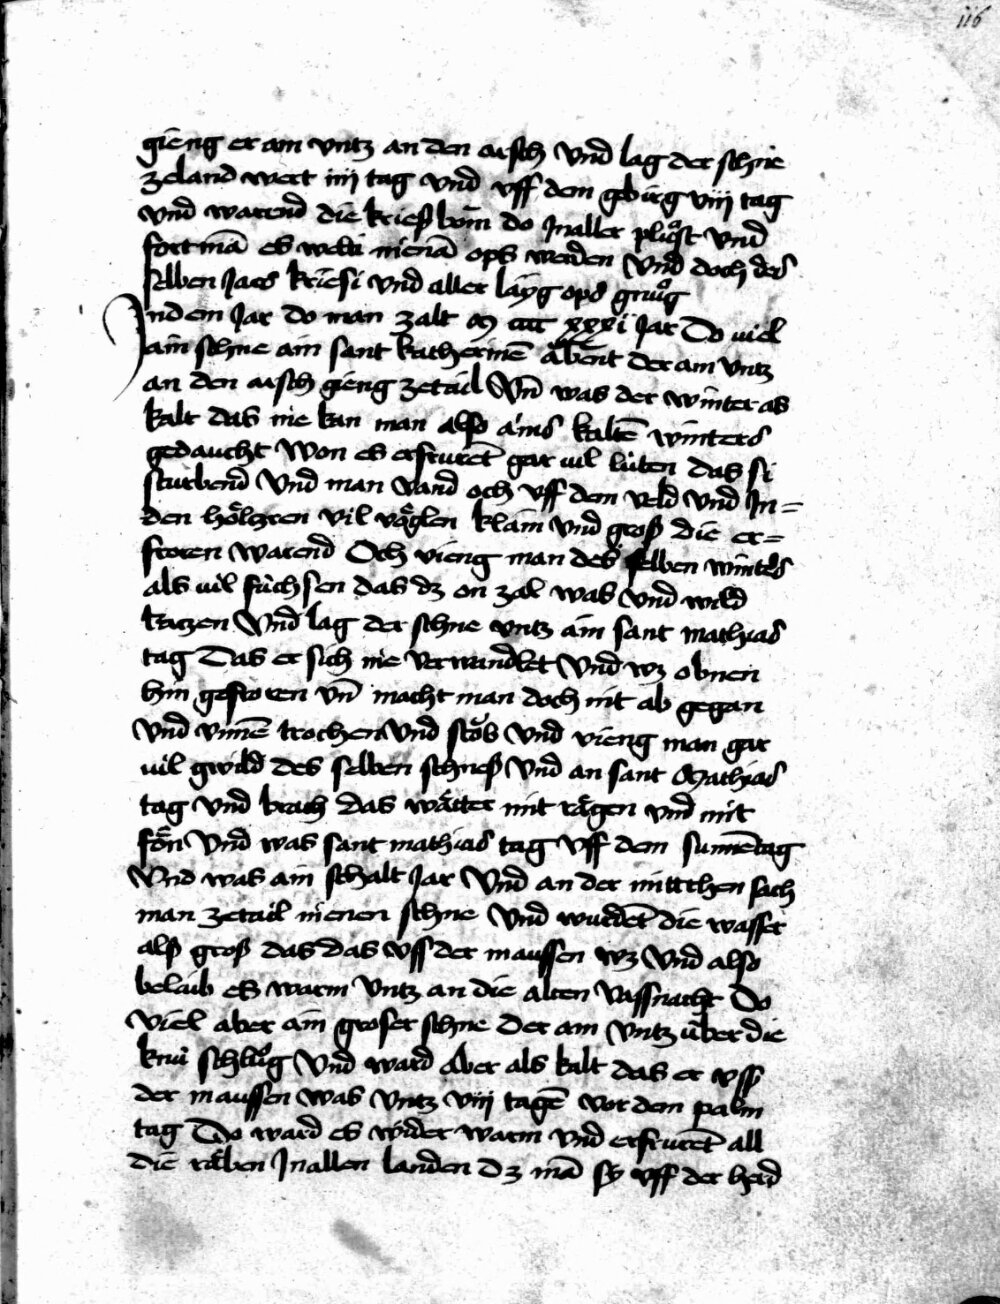 116
gieng er am untz an den arsch Vnd lag der schne
ze land wert iiij tag Vnd vff dem gebirg viij tag
Vnd warend die kriesbom do Jn aller pluͦst Vnd
fort mā es wetti nienā ops werden Vnd doch des
selben Jars kriesi Vnd aller layg ops gnuͦg
Jn dem Jar do man zalt M cccc xxxi Jar Do viel
ain schne ain sant katherinē abent der am Vntz
an den arsch gieng ze tail Vn̄ was der winter as
kalt das nie kan man also ains kaltē winters
gedaucht Won es erfrurēt gar vil luͥten das si
sturbend Vnd man vand och vff dem veld Vnd Jn=
den hoͤltzren vil voͤglen klain Vnd gros die er=
froren warend Och vieng man des selben winters
als vil fuͥchsen das dz on zal was Vnd wild
katzen Vnd lag der schne vntz ain sant mathias
tag Das er sich nie verwandlet Vnd wz obnen
hin gefroren Vn̄ macht man doch nit ab gegan
Vnd trochen Vnd stob Vnd vieng man gar
vil gwild des selben schnes Vnd an sant Mathias
tag Vnd brach das waͤtter mit raͤgen Vnd mit
foͤn Vnd was sant mathias tag Vff dem sunnentag
Vnd was ain schalt Jar Vnd an der mittchen sach
man ze tail nienen schne Vnd wurdēt die wasser
als gros das das vss der maussen wz Vnd also
belaib es warm Vntz an die alten Vassnacht Do
Viel aber ain groser schne Der am Vntz uͥber die
knuͥ schluͦg Vnd ward Aber als kalt das er vss
der maussen was Vntz viij tagē vor dem palm
tag Do ward es wider warm vnd erfrurēt all
die raͤben Jn allen landen dz mā sy vff der herd